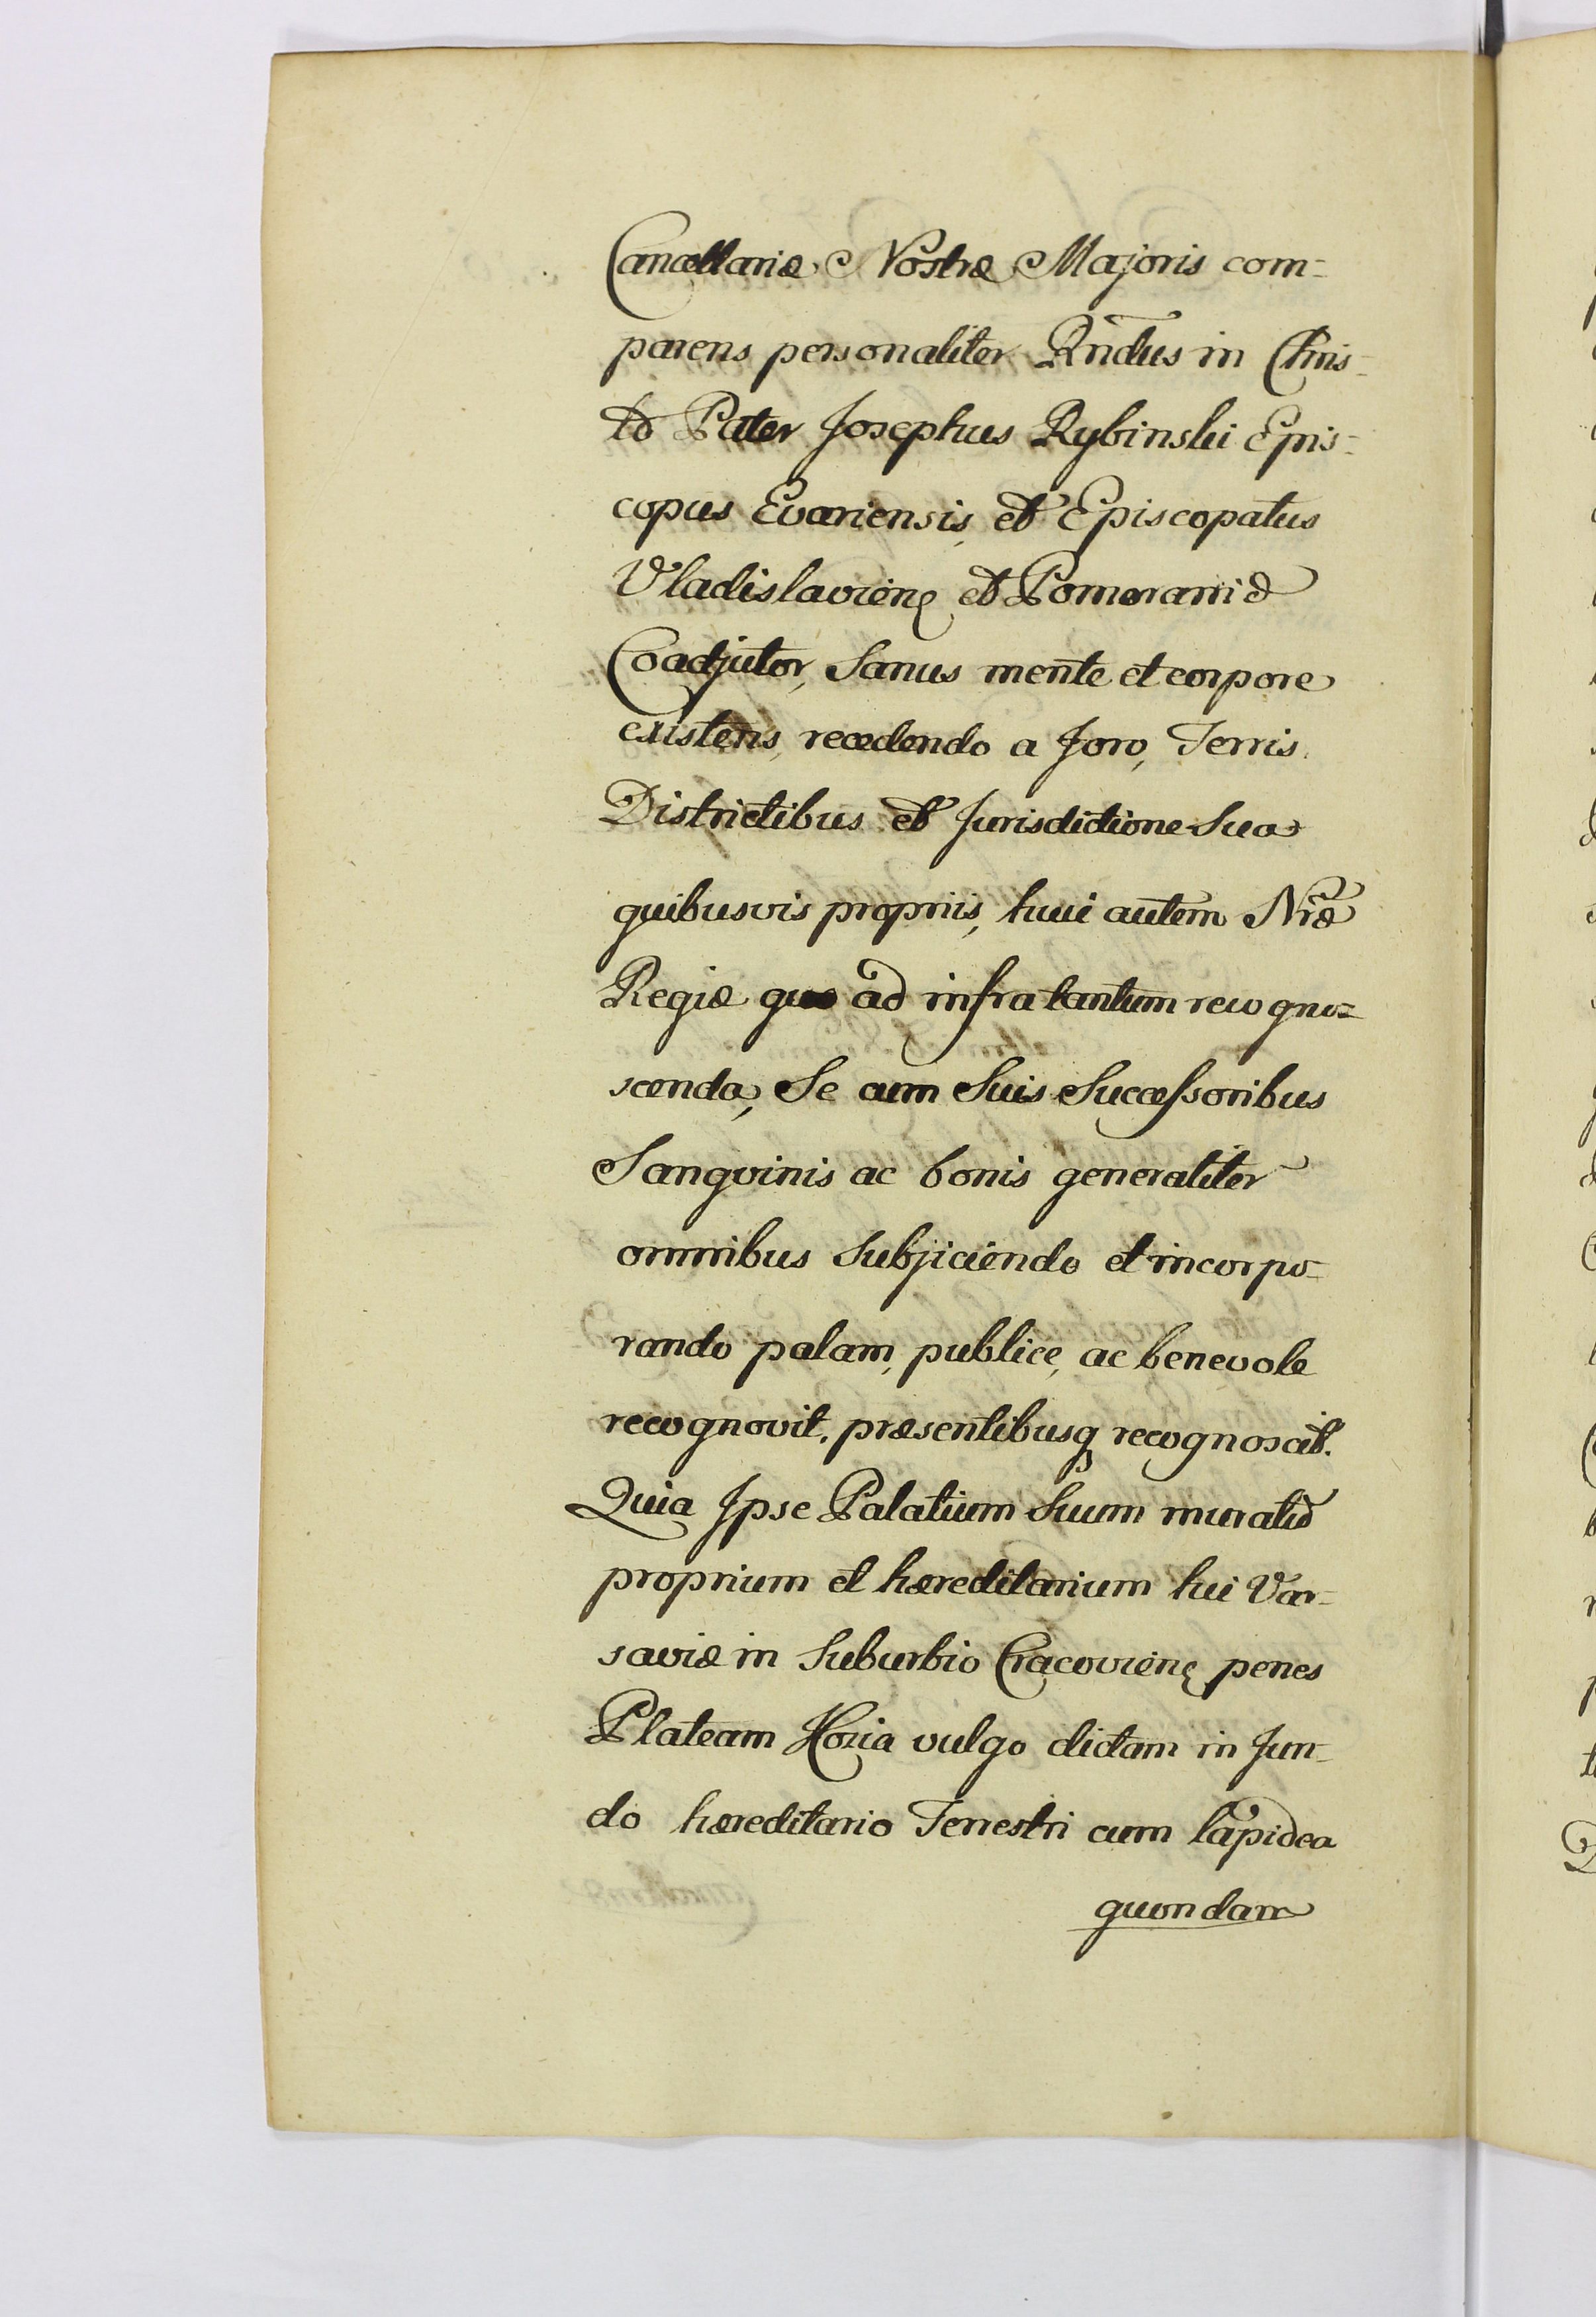 Cancellariæ Nostræ Majoris com=
parens personaliter Rñdus in Chris=
to Pater Josephus Rybinski Epis=
copus Evariensis, et Episcopatus
Vladislavieñ et Pomeraniæ
Coadjutor, Sanus mente et corpore
existens, recedendo a foro, Terris.
Districtibus et Jurisdictione Sua
quibusvis propriis, huic autem Nræ
Regiæ quo ad infra tantum recogno=
scenda, Se cum Suis Successoribus
Sangvinis ac bonis generaliter
omnibus Subjiciendo et incorpo=
rando palam, publice, ac benevole
recognovit, præsentibusq recognoscit.
Quia Ipse Palatium Suum muratū
proprium et hæreditarium hic Var=
saviæ in Suburbio Cracovieñ penes
Plateam Kozia vulgo dictam in fun=
do hæreditario Terrestri cum lapidea
quondam